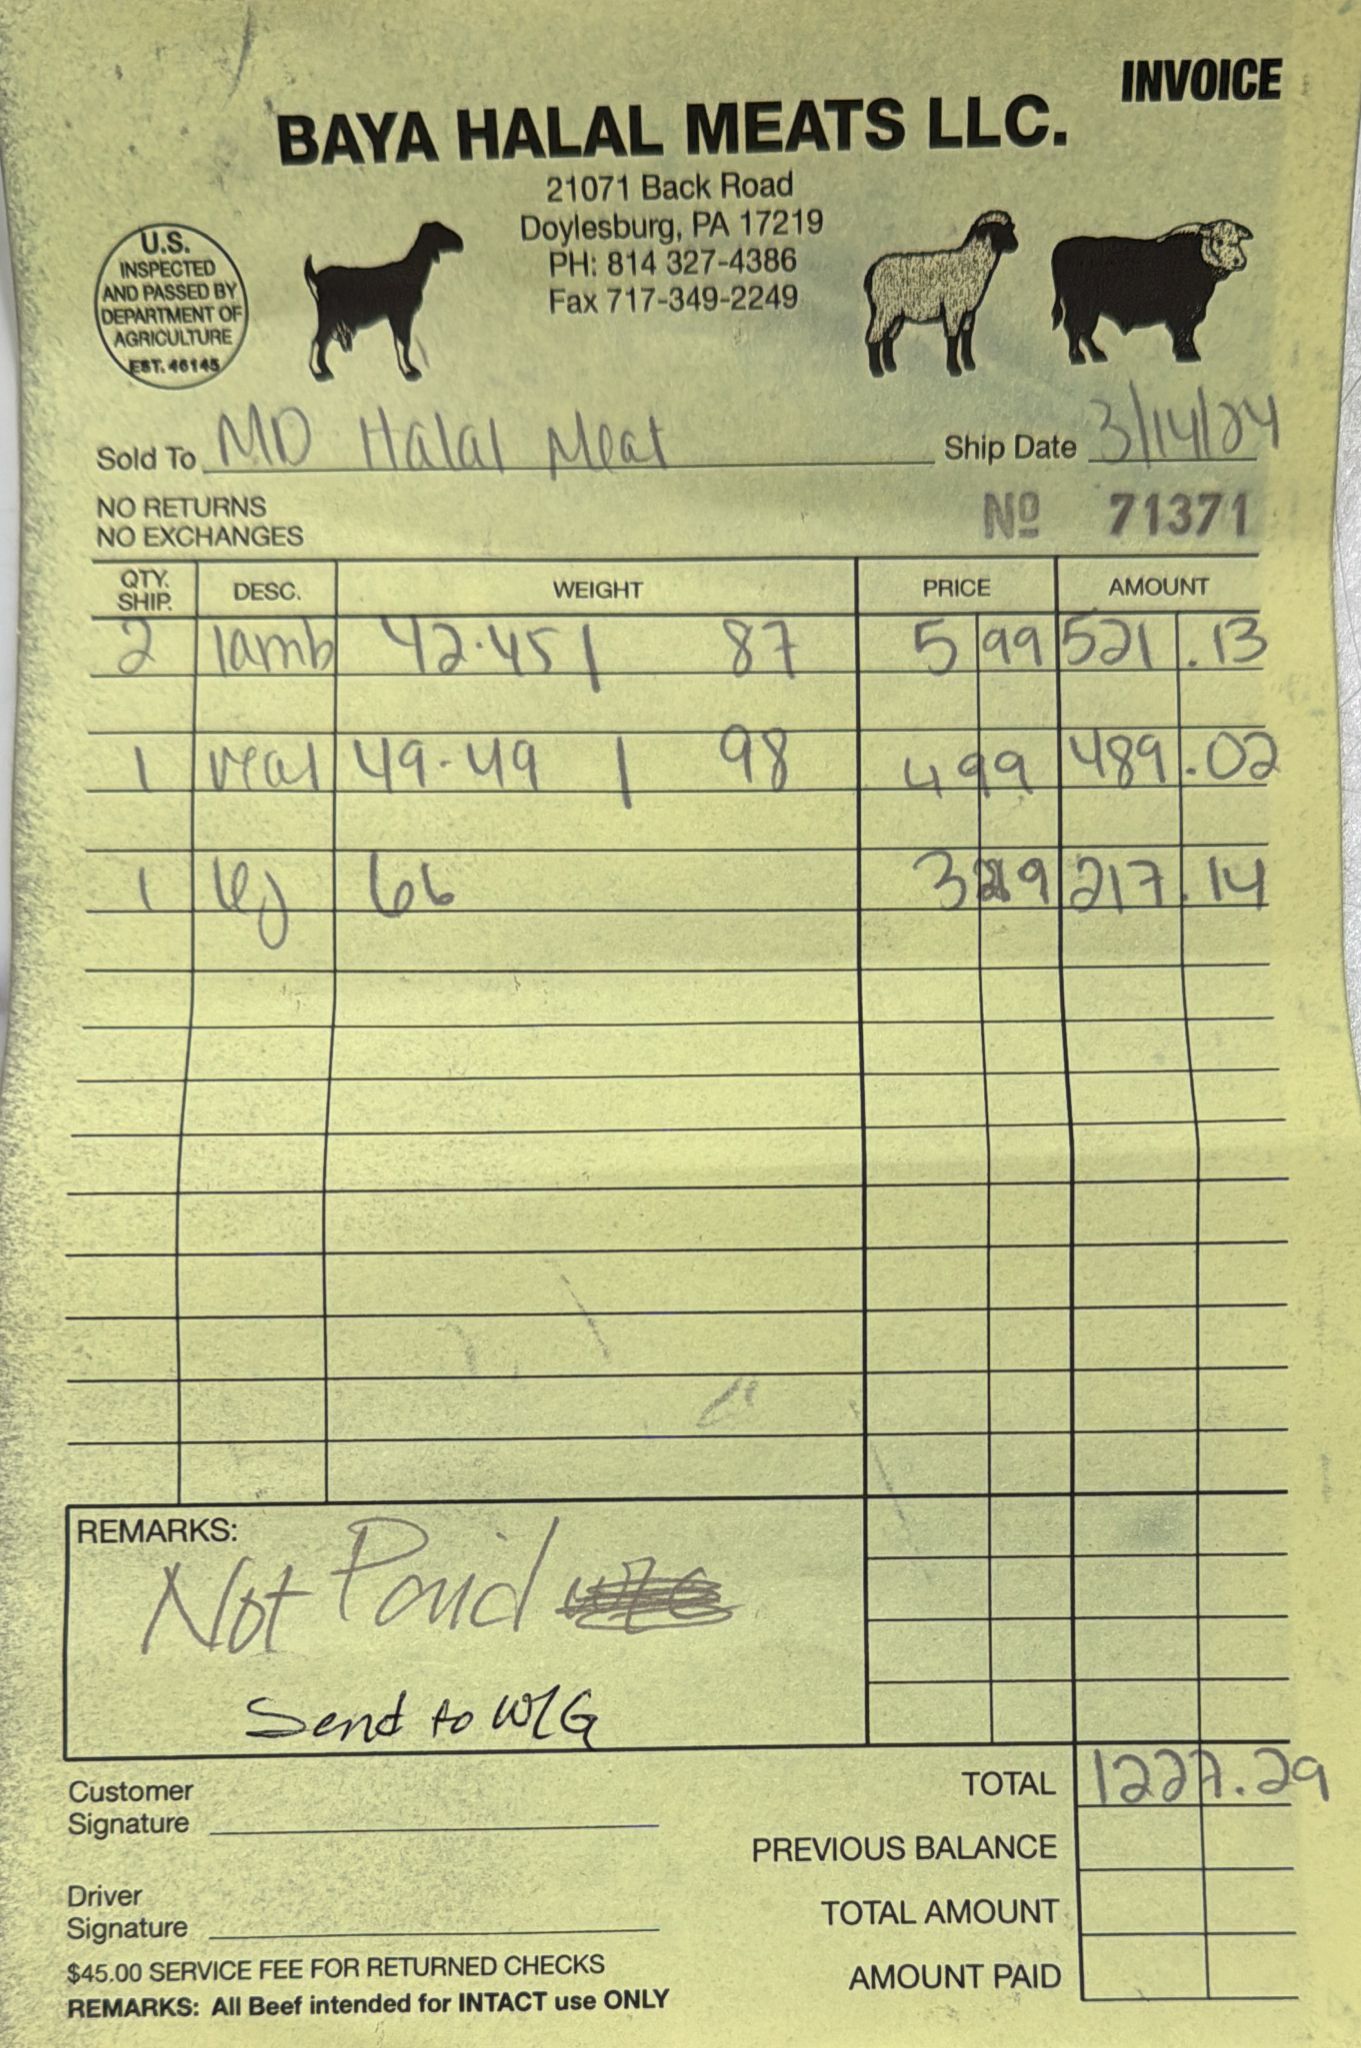 INVOICE
BAYA HALAL MEATS LLC.
21071 Back Road
Doylesburg, PA 17219
PH: 814 327-4386
Fax 717-349-2249
U.S.
INSPECTED
AND PASSED BY
DEPARTMENT OF
AGRICULTURE
EST. 46145
Sold To MD Halal Meat Ship Date 3/14/24
NO RETURNS
NO EXCHANGES
Nº 71371
QTY. SHIP. DESC. WEIGHT PRICE AMOUNT
2 lamb 42.45 | 87 5 99 521.13
1 veal 49-49 | 98 4 99 489.02
1 leg 66 3 29 217.14
REMARKS:
Not Paid
Send to WLG
TOTAL 1227.29
Customer
Signature
PREVIOUS BALANCE
Driver
Signature
TOTAL AMOUNT
$45.00 SERVICE FEE FOR RETURNED CHECKS
AMOUNT PAID
REMARKS: All Beef intended for INTACT use ONLY